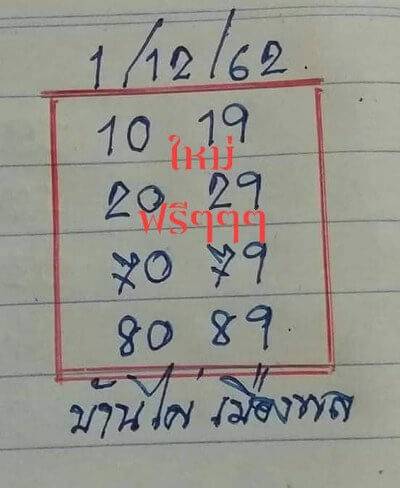 1/12/62
10 19
ใหม่
20 29
ฟรีๆๆๆ
70 79
80 89
บ้านไผ่ เมืองพล